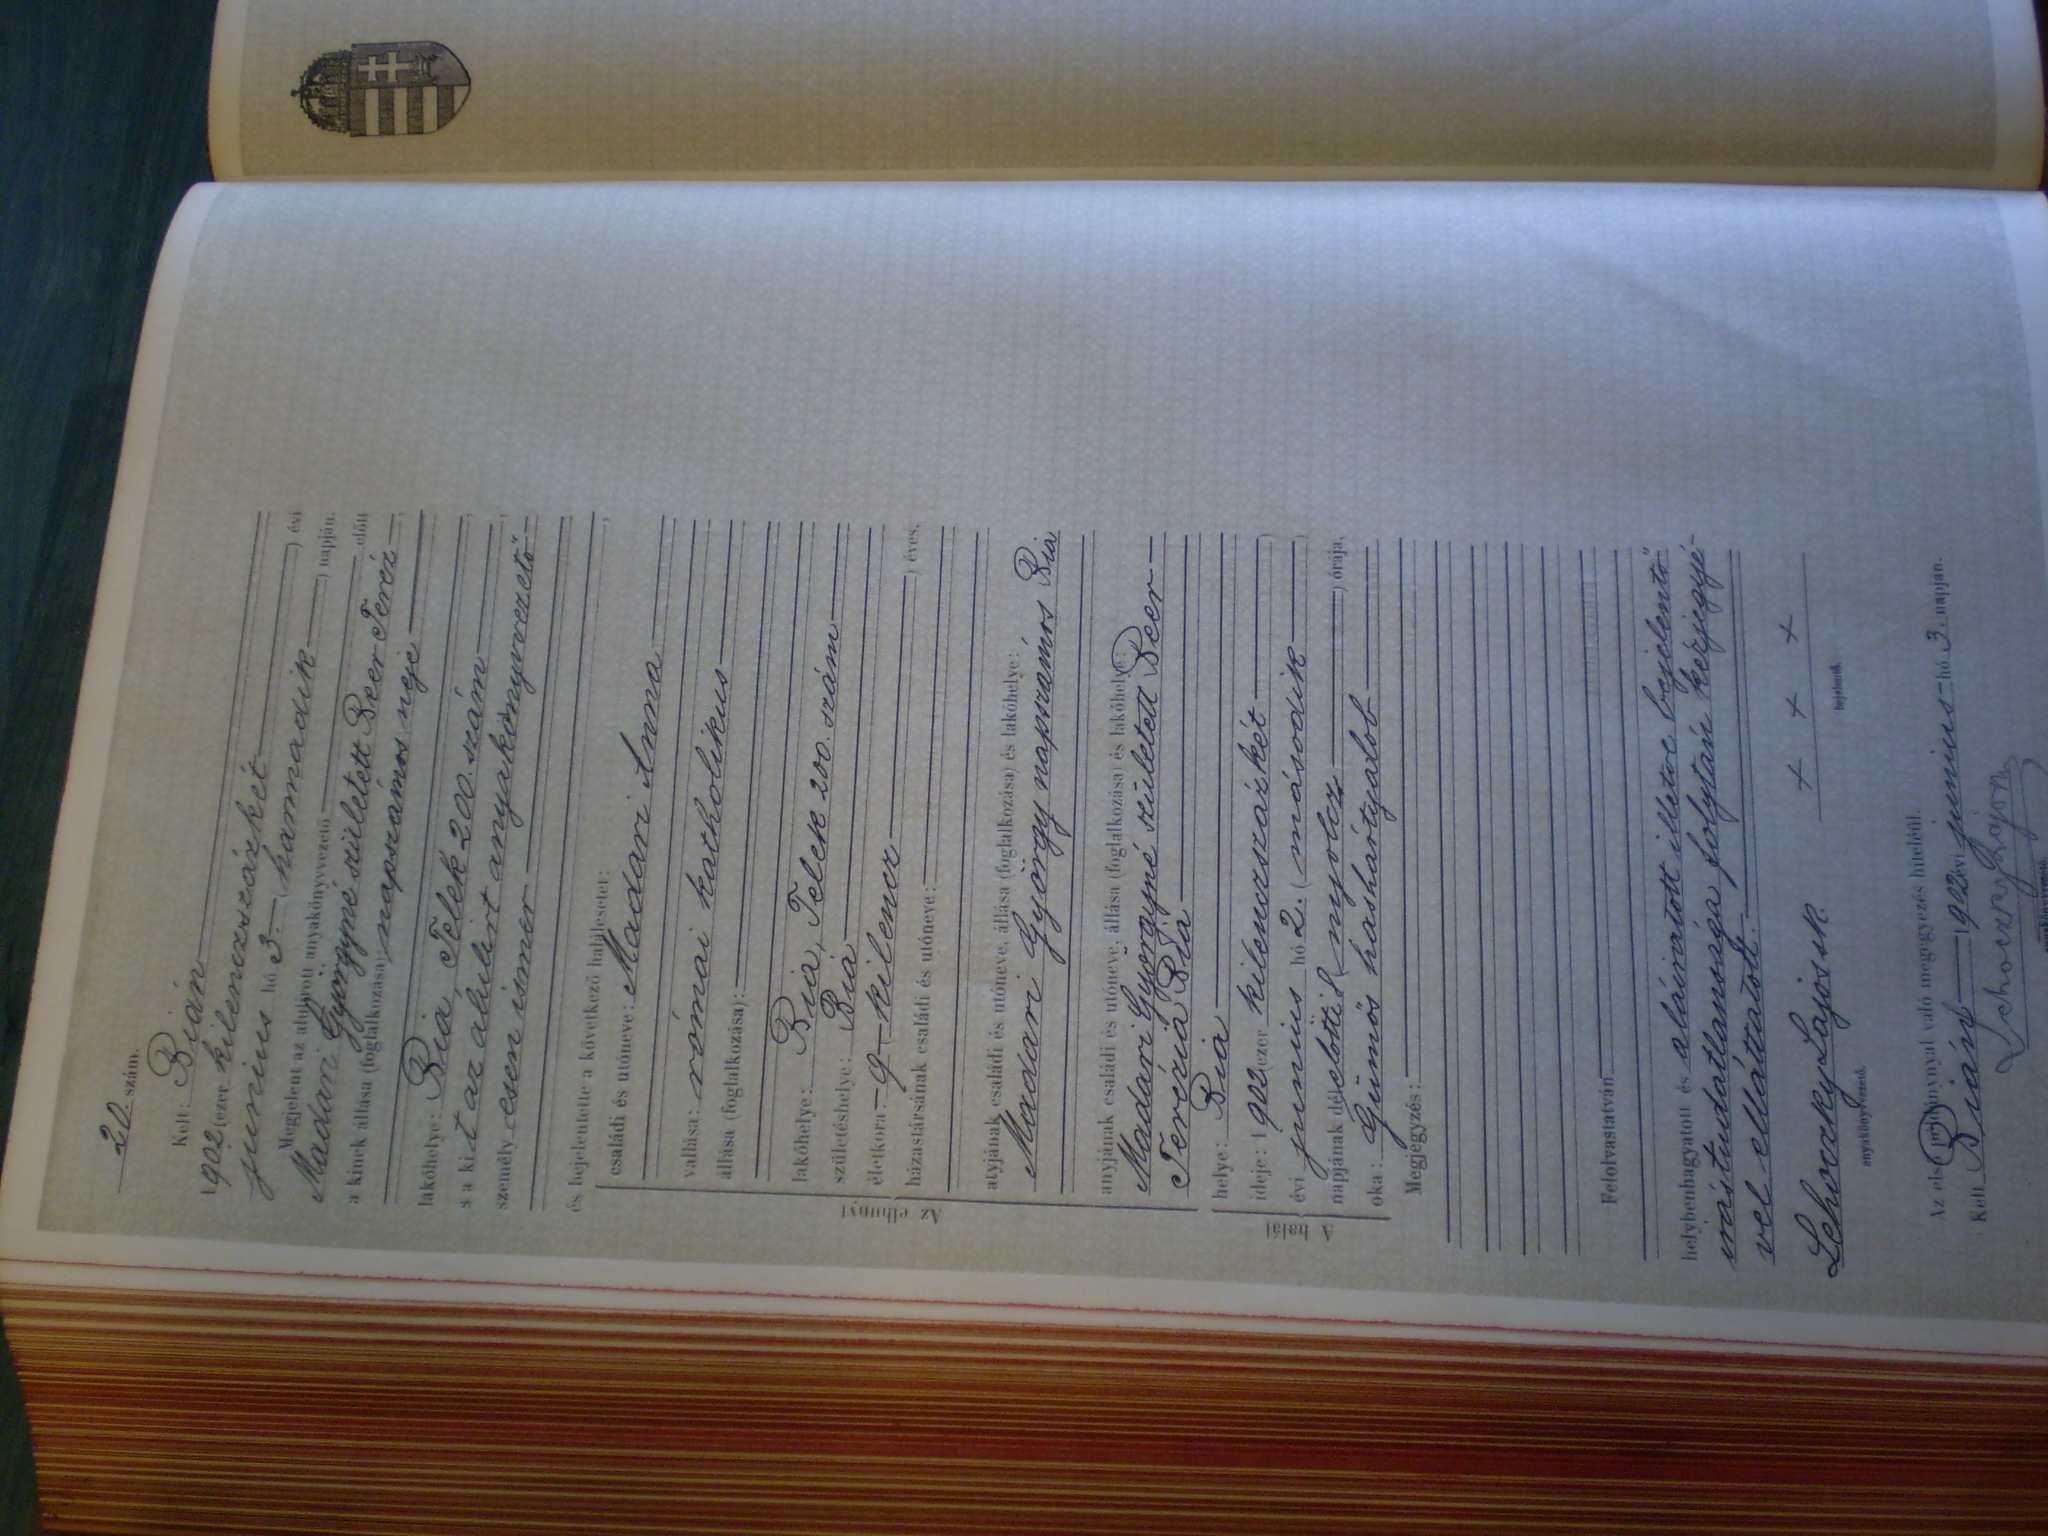 20. szám.
Kelt: Bián
1902 (ezer kilenczszázkét
) évi
junius hó 3. (harmadik ) napján.
Megjelent az alulirott anyakönyvvezető előtt
Madari Györgyné született Beer Teréz
a kinek állása (foglalkozása) napszámos neje
lakóhelye: Bia, Telek 200. szám
s a ki t az alulirt anyakönyvvezető
személyesen ismer
és bejelentette a következő halálesetet:
Az elhunyt
családi és utóneve: Madari Anna
vallása: római katholikus
állása (foglalkozása):
lakóhelye: Bia, Telek 200. szám
születéshelye: Bia
életkora: 9 (kilencz ) éves.
házastársának családi és utóneve:
atyjának családi és utóneve, állása (foglalkozása) és lakóhelye:
Madari György napszámos Bia
anyjának családi és utóneve, állása (foglalkozása) és lakóhelye:
Madari Györgyné született Beer
Terézia Bia
A halál
helye: Bia
ideje: 1902 (ezer kilenczszázkét )
évi junius hó 2. (második )
napjának délelőtti 8 (nyolcz ) órája.
oka: Gümős hashártyalob
Megjegyzés:
Felolvastatván
helybenhagyatott és aláiratott illetve bejelentő
irástudatlansága folytán kézjegyé-
vel elláttatott.
Lehoczky Lajos sk. x x x
anyakönyvvezető. bejelentő.
Az első példánynyal való megegyezés hiteléül.
Kelt Bián 1902 évi junius hó 3. napján.
Lehoczky Lajos
anyakönyvvezető.